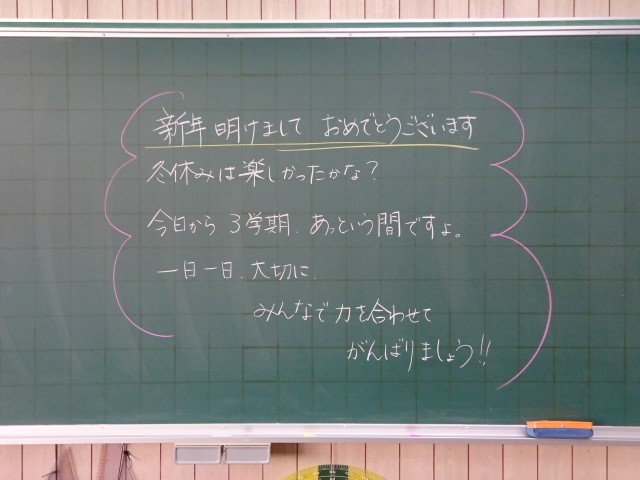 新年 明けまして おめでとうございます
冬休みは楽しかったかな？
今日から 3学期. あっという間ですよ。
一日一日. 大切に.
みんなで力を合わせて
がんばりましょう!!